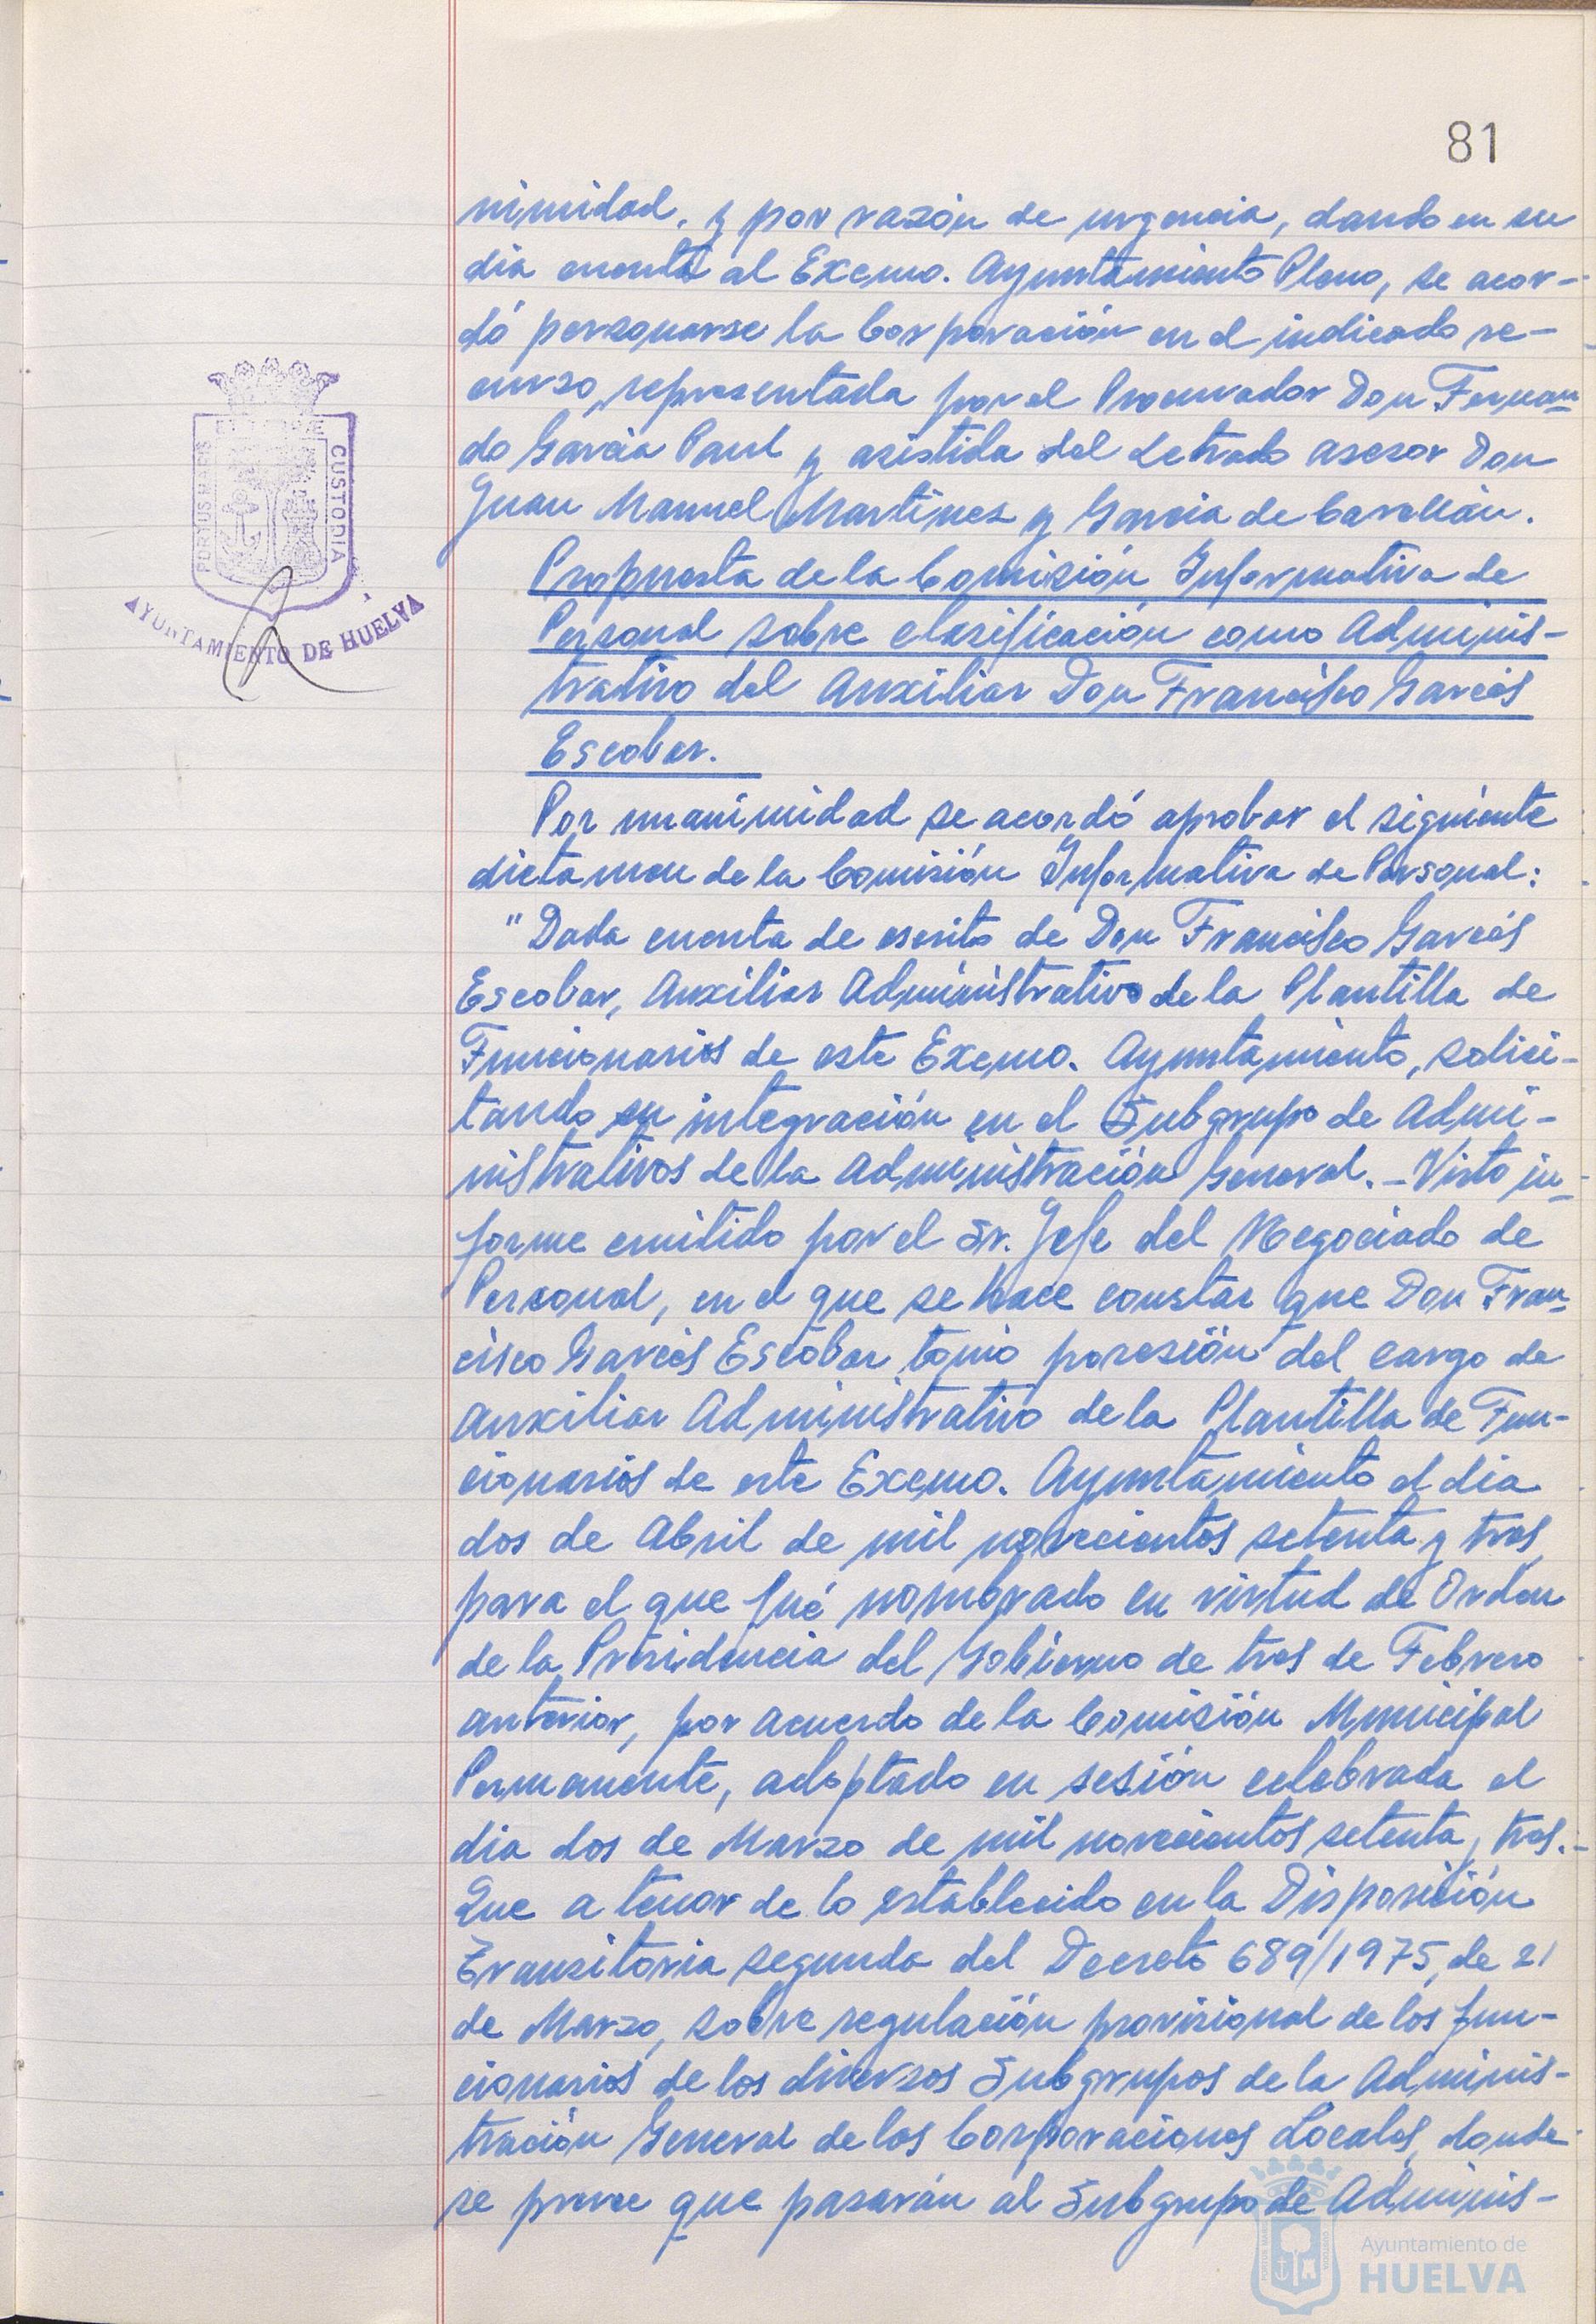 81
nimidad, y por razón de urgencia, dando en su
dia cuenta al Excmo. Ayuntamiento Pleno, se acor-
dó personarse la Corporación en el indicado re-
curso, representada por el Procurador Don Fernan-
do García Paul y asistida del Letrado asesor Don
Juan Manuel Martinez y Garcia de Carellán.
Propuesta de la Comisión Informativa de
Personal sobre clasificación como Adminis-
trativo del Auxiliar Don Francisco Garcés
Escobar.
Por unanimidad se acordó aprobar el siguiente
dictamen de la Comisión Informativa de Personal:
"Dada cuenta de escrito de Don Francisco Garcés
Escobar, Auxiliar Administrativo de la Plantilla de
Funcionarios de este Excmo. Ayuntamiento, solici-
tando su integración en el Subgrupo de Admi-
nistrativos de la Administración General.- Visto in-
forme emitido por el Sr. Jefe del Negociado de
Personal, en el que se hace constar que Don Fran-
cisco Garcés Escobar tomó posesión del cargo de
auxiliar Administrativo de la Plantilla de Fun-
cionarios de este Excmo. Ayuntamiento el dia
dos de Abril de mil novecientos setenta y tres,
para el que fué nombrado en virtud de Orden
de la Presidencia del Gobierno de tres de Febrero
anterior, por acuerdo de la Comisión Municipal
Permanente, adoptado en sesión celebrada el
dia dos de Marzo de mil novecientos setenta y tres.-
Que a tenor de lo establecido en la Disposición
Transitoria segunda del Decreto 689/1975, de 21
de Marzo, sobre regulación provisional de los fun-
cionarios de los diversos Subgrupos de la Adminis-
tración General de las Corporaciones Locales, donde
se preve que pasarán al Subgrupo de Adminis-
PORTUS MARIS
ET TERRAE
CUSTODIA
AYUNTAMIENTO DE HUELVA
Ayuntamiento de
HUELVA